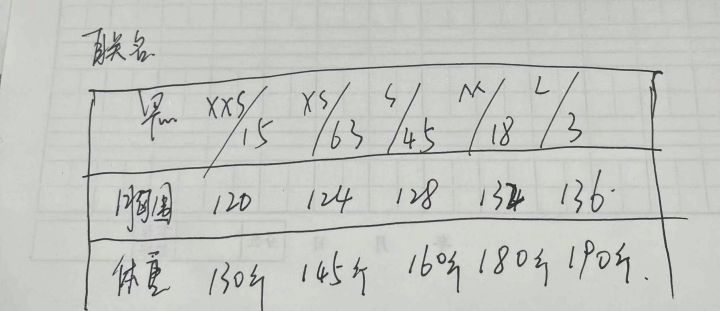 联名
XXS/15 XS/63 S/45 M/18 L/3
胸围 120 124 128 132 136
体重 130斤 145斤 160斤 180斤 190斤